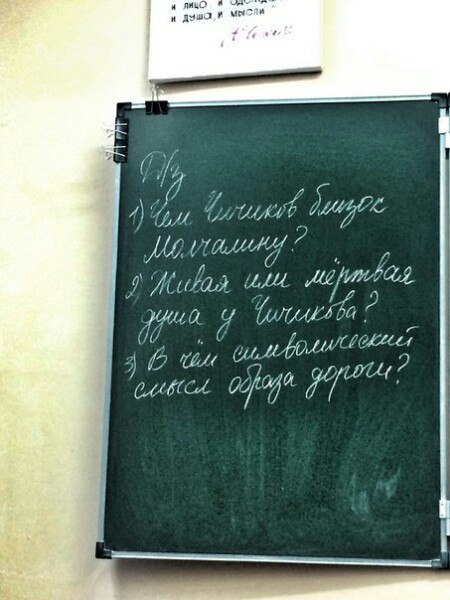 и лицо, и одежда,
и душа, и мысли"
Д/з
1) Чем Чичиков близок
Молчалину?
2) Живая или мёртвая
душа у Чичикова?
3) В чём символический
смысл образа дороги?